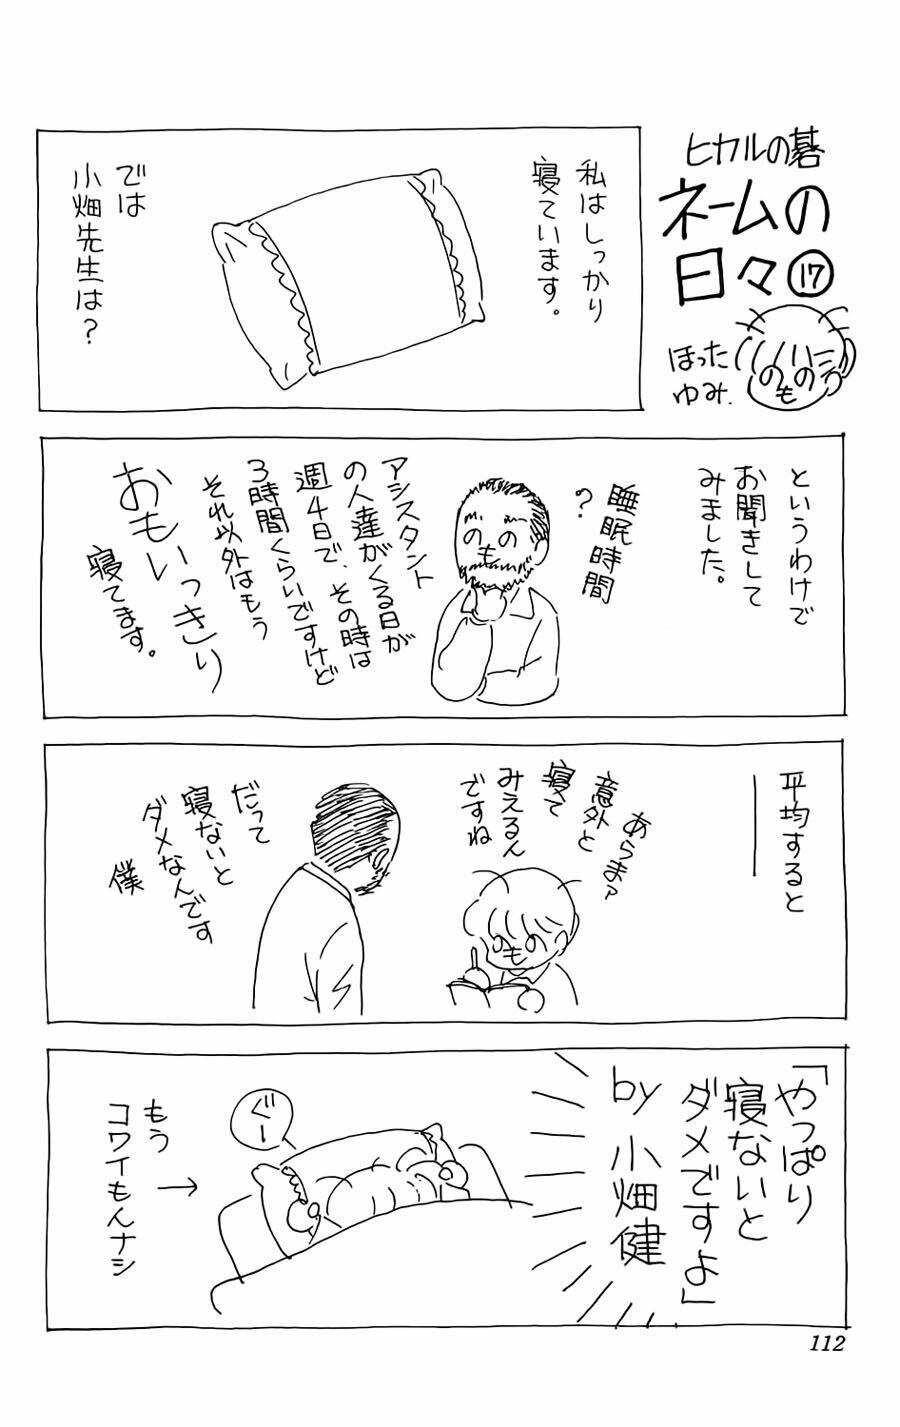 ヒカルの碁
ネームの
日々⑰
ほった
ゆみ.
私はしっかり
寝ています。
では
小畑先生は?
というわけで
お聞きして
みました。
睡眠時間
?
アシスタント
の人達がくる日が
週4日で、その時は
3時間くらいですけど
それ以外はもう
おもいっきり
寝てます。
平均すると
―
あらまァ
意外と
寝て
みえるん
ですね
だって
寝ないと
ダメなんです
僕
「やっぱり
寝ないと
ダメですよ」
by 小畑健
ぐー
もう
コワイもんナシ
→
112